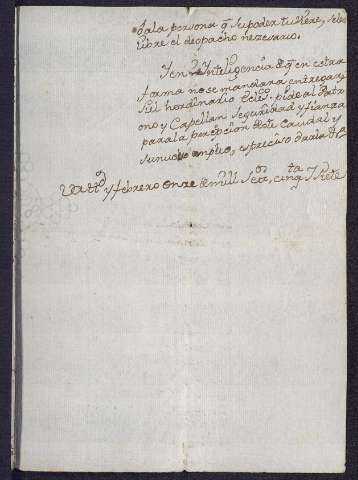 dala persona q̃ su poder tubiere, se le
libre el despacho nezesario.
Y en Inteligencia de q̃ en estra
forma no se mandara entregar
si el hordinario ecles. pide al Patr
ono y Capellan seguridad y fianza
para la percepcion de este caudal y
su nuebo empleo, es preciso darla
y febrero onze de mill Setos. cinqta. y Siete